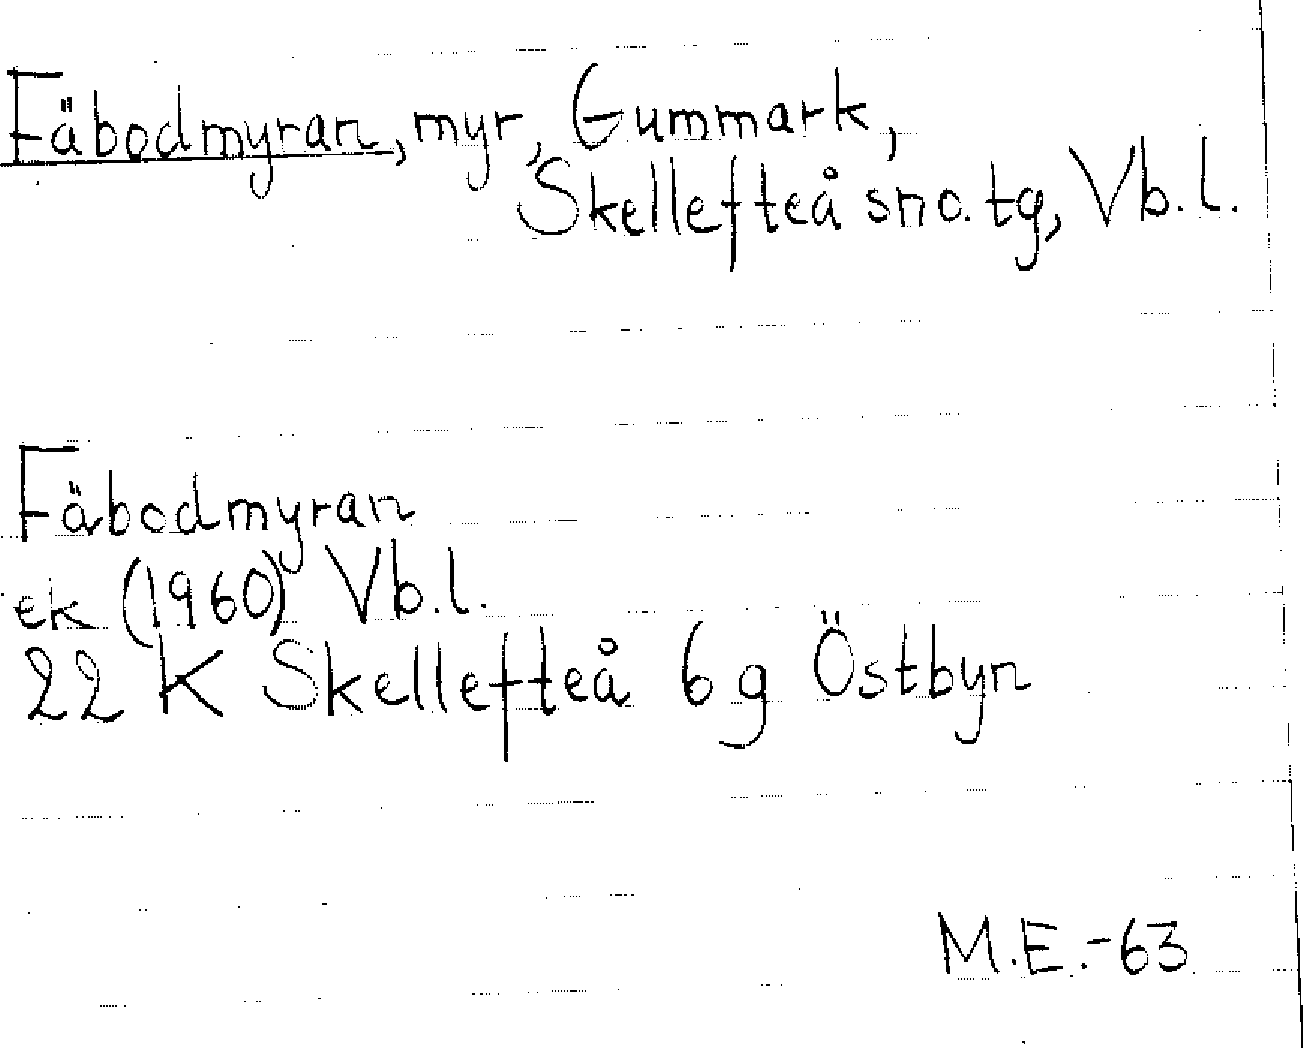 Fäbodmyran, myr, Gummark,
Skellefteå sno. tg, Vb. l.
Fäbodmyran
ek (1960) Vb. l.
22 K Skellefteå 6 g Östbyn
M.E.-63